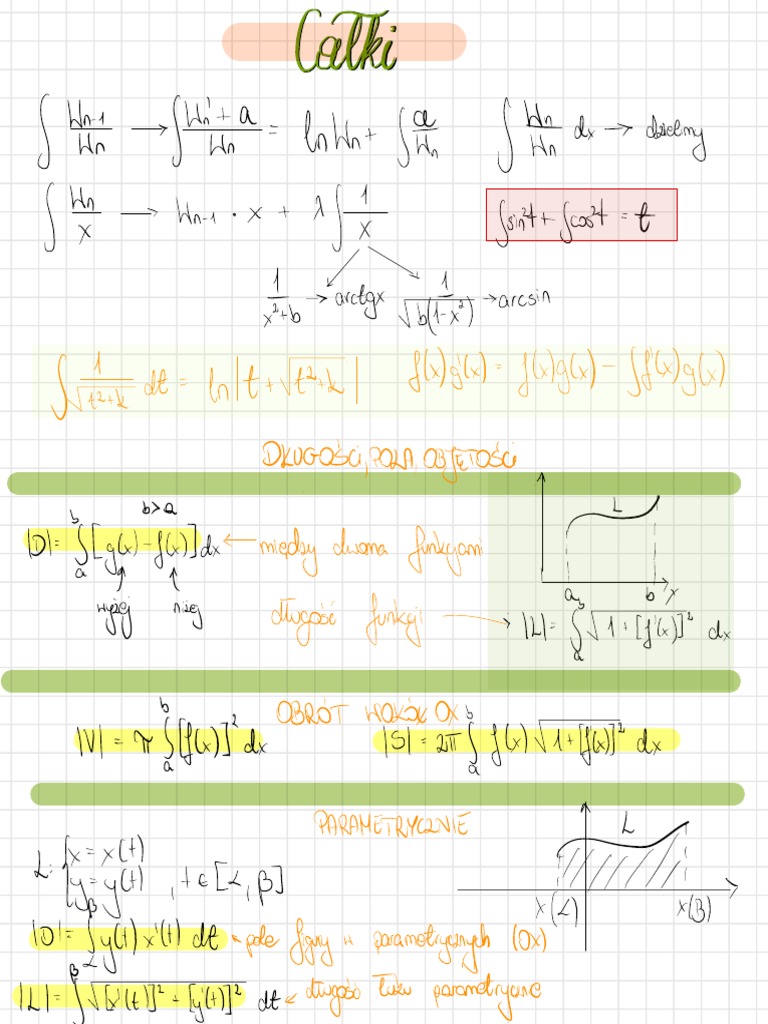 Całki
∫ Wn-1/Wn → ∫ Wn' + a/Wn = ln Wn + ∫ a/Wn   ∫ Wn/Wn dx → dzielimy
∫ Wn/x → Wn-1 · x + λ ∫ 1/x   ∫sin²t + ∫cos²t = t
1/x²+b → arctgx   1/√b(1-x²) → arcsin
∫ 1/√t²+k dt = ln|t + √t²+k|   f(x)g'(x) = f(x)g(x) - ∫f'(x)g(x)
DŁUGOŚCI, POLA, OBJĘTOŚCI
b>a   L
|D| = ∫ₐᵇ [g(x) - f(x)] dx ← między dwoma funkcjami
wyżej   niżej   a   b   x
długość funkcji → |L| = ∫ₐᵇ √1 + [f'(x)]² dx
OBRÓT WOKÓŁ OX
|V| = π ∫ₐᵇ [f(x)]² dx   |S| = 2π ∫ₐᵇ f(x) √1 + [f'(x)]² dx
PARAMETRYCZNIE
L: { x = x(t)   L
y = y(t) , t ∈ [α, β]
x(α)   x(β)
|D| = ∫_α^β y(t) x'(t) dt ← pole figury w parametrycznych (Ox)
|L| = ∫^β √[x'(t)]² + [y'(t)]² dt ← długość łuku parametryczne